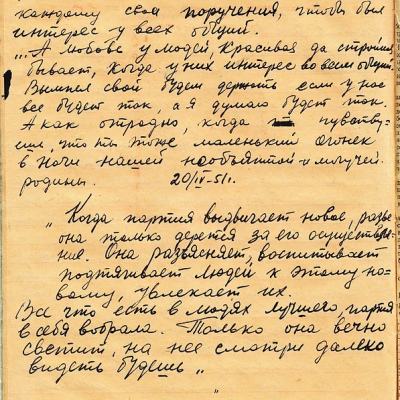 каждому свои поручения, чтобы был
интерес у всех общий.
"...А любовь у людей, красивая да стройная
бывает, когда у них интерес во всем общий.
свой будем держать если у нас
все будет так, а я думаю будет так.
А как отрадно, когда чувству-
ешь, что ты тоже маленький огонек
в ночи нашей необъятной и могучей
родины. 20/II-51г.
"Когда партия выдвигает новое, разве
она только дерется за его осуществле-
ние. Она разъясняет, воспитывает
подтягивает людей к этому но-
вому, увлекает их.
Все что есть в людях лучшего, партия
в себя вобрала. Только она вечно
светит, на нее смотри далеко
видеть будешь"